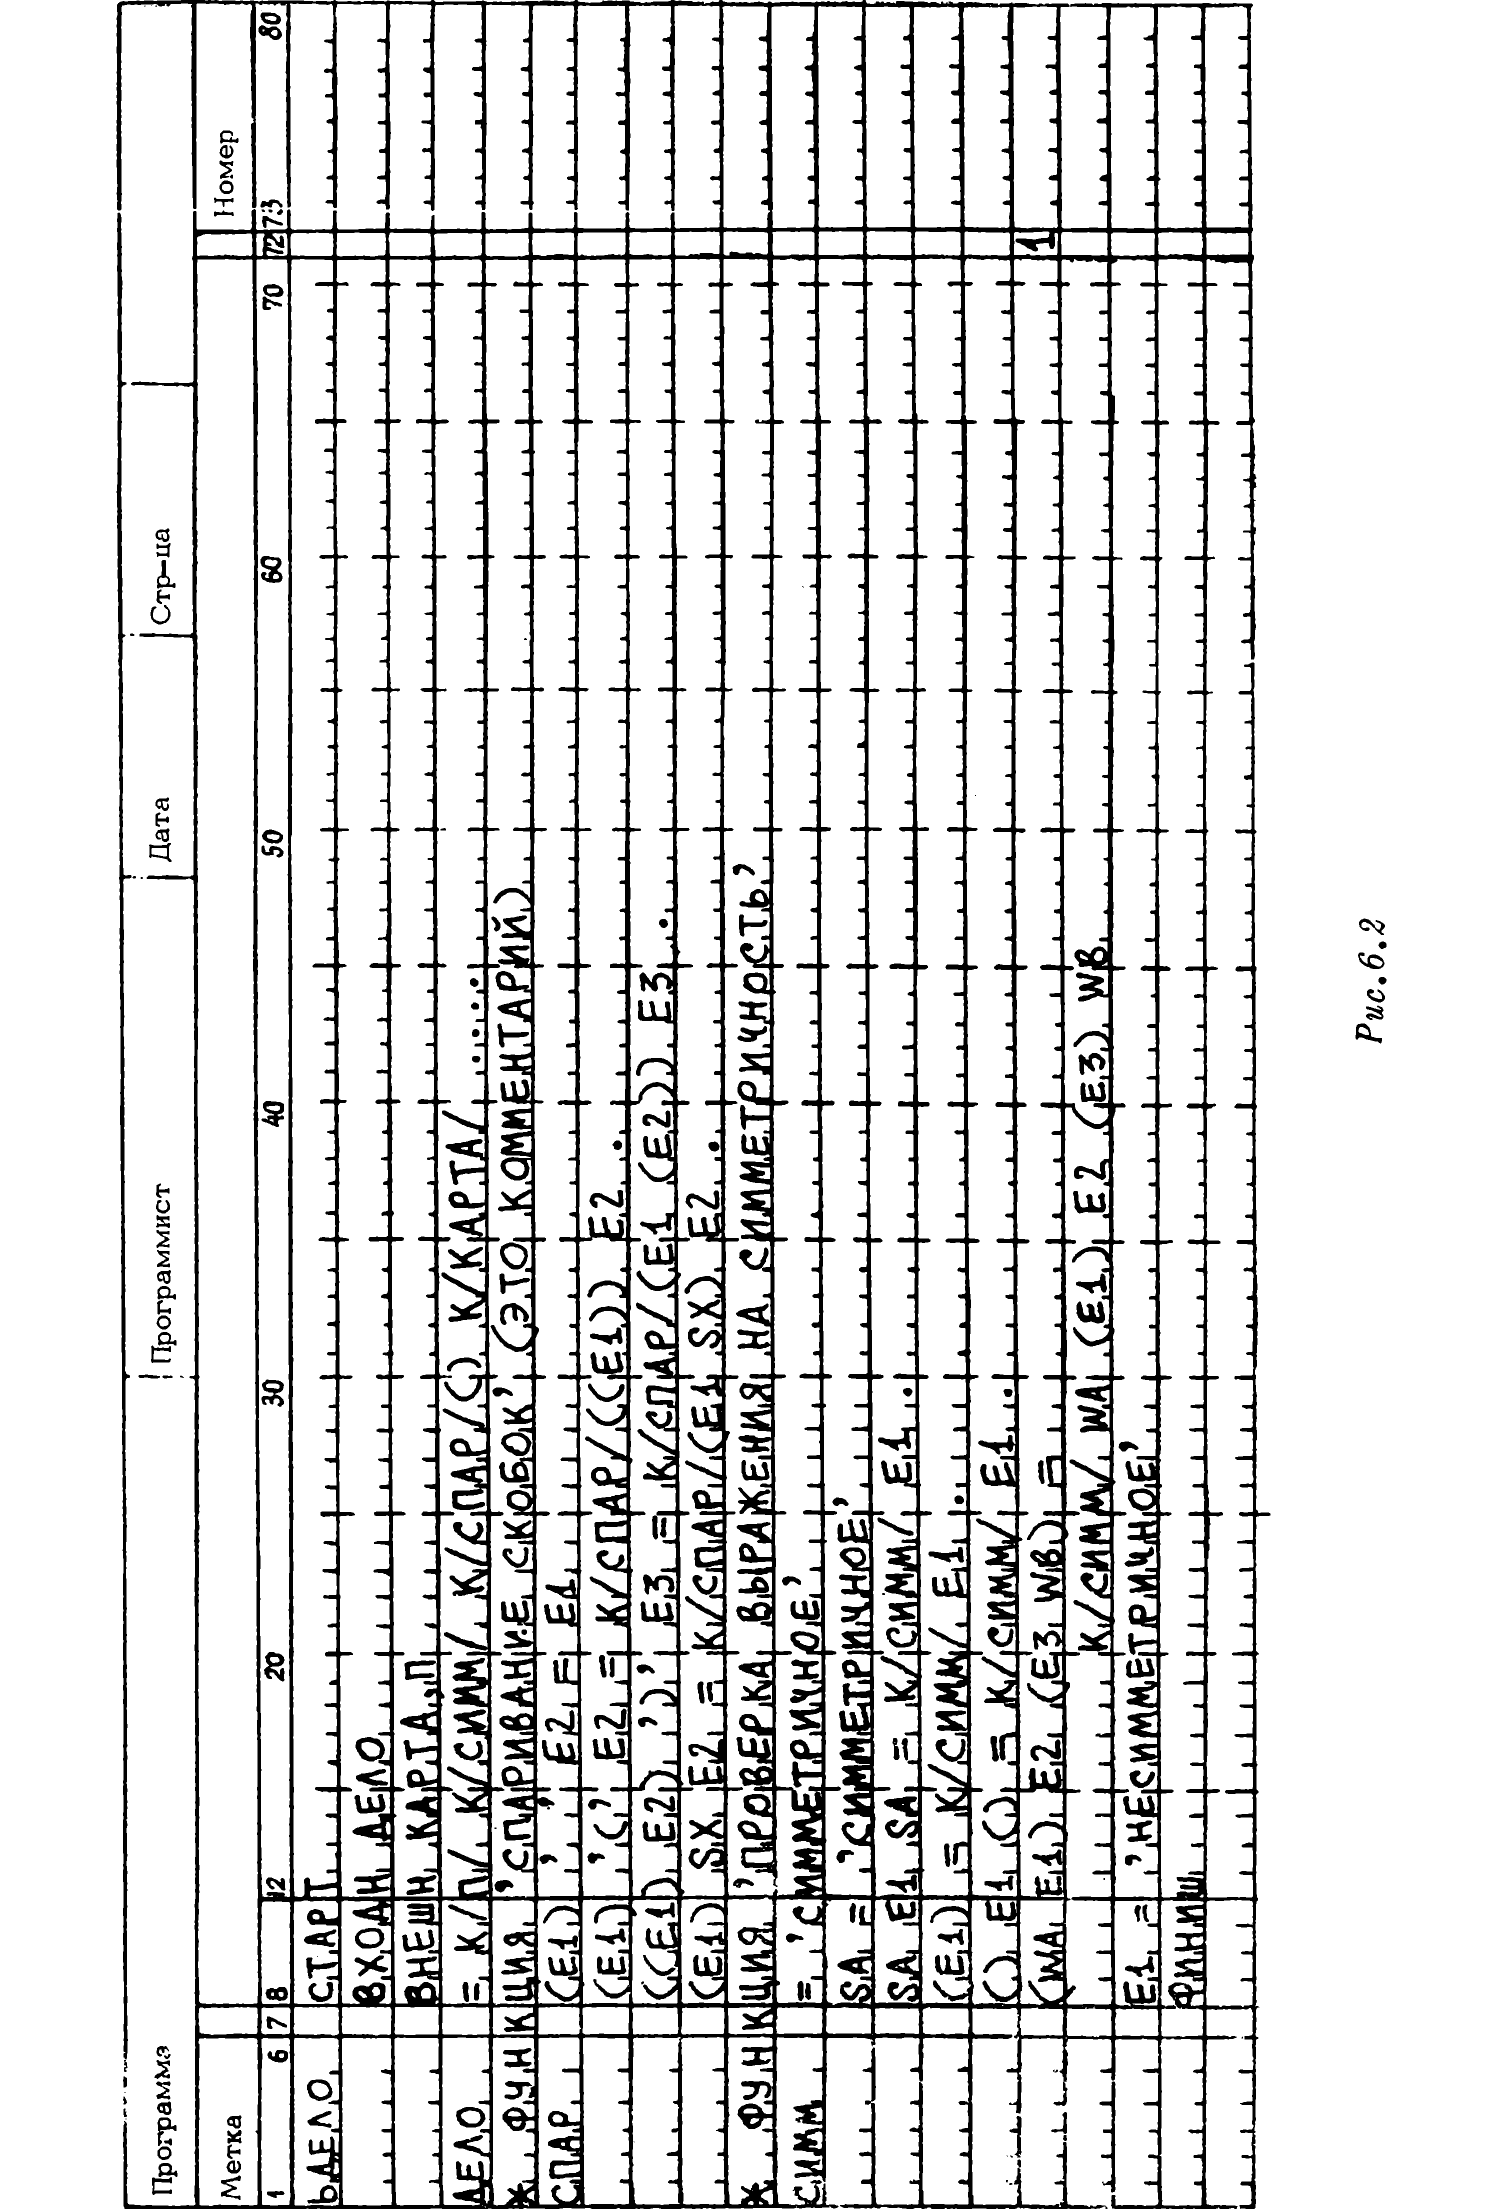 Программа Программист Дата Стр-ца
Метка Номер
1 6 7 8 12 20 30 40 50 60 70 72 73 80
ЬДЕЛО СТАРТ
ВХОДН ДЕЛО
ВНЕШН КАРТА,П
ДЕЛО = К/П/ К/СИММ/ К/СПАР/() К/КАРТА/ ......
* ФУНКЦИЯ 'СПАРИВАНИЕ СКОБОК' (ЭТО КОММЕНТАРИЙ)
СПАР (E1) '.' E2 = E1
(E1) '(' E2 = К/СПАР/((E1)) E2 .
((E1) E2) ')' E3 = К/СПАР/(E1 (E2)) E3 .
(E1) SX E2 = К/СПАР/(E1 SX) E2 .
* ФУНКЦИЯ 'ПРОВЕРКА ВЫРАЖЕНИЯ НА СИММЕТРИЧНОСТЬ'
СИММ = 'СИММЕТРИЧНОЕ'
SA = 'СИММЕТРИЧНОЕ'
SA E1 SA = К/СИММ/ E1 .
(E1) = К/СИММ/ E1 .
() E1 () = К/СИММ/ E1 .
(WA E1) E2 (E3 WB) = 1
К/СИММ/ WA (E1) E2 (E3) WB
E1 = 'НЕСИММЕТРИЧНОЕ'
ФИНИШ
Рис.6.2